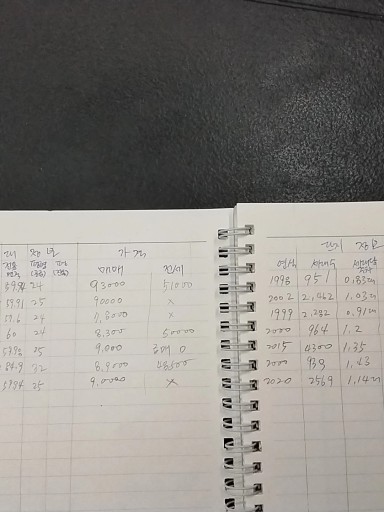 정보 가격
전용 면적 평형 (공급)
매매 전세
59.92 24 93000 51000
59.91 25 90000 x
59.6 24 x
60 24 8,300 50000
25 9,000 0
84.9 32 8,9000 48500
59.94 25 9,0000 x
단지 정보
연식 세대수 세대당 주차
1998 951 0.83대
2002 2,462 1.03대
1999 2,282 0.91대
2000 964 1.2
2015 4300 1.35
2000 939 1.43
2020 2569 1.14대